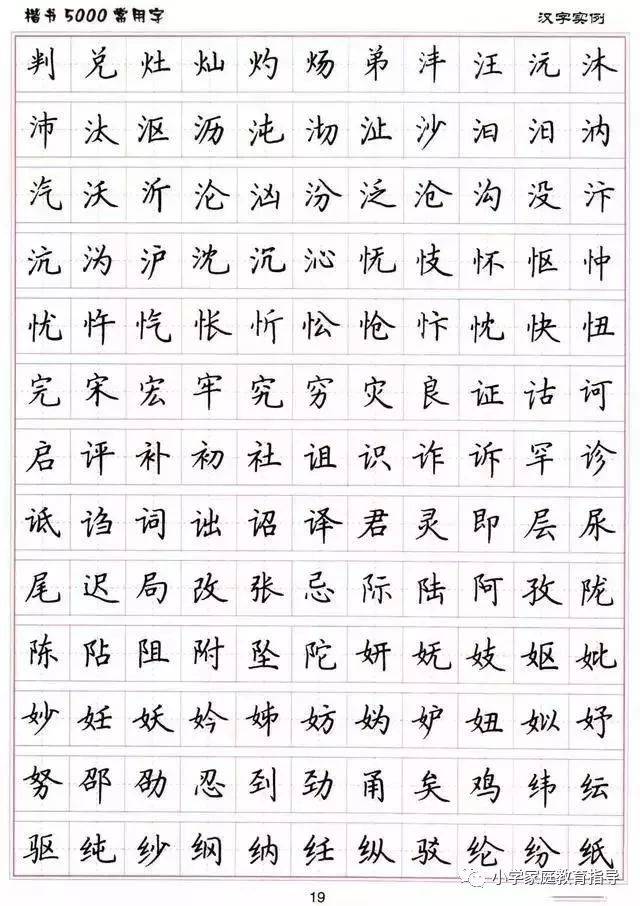 楷书5000常用字 汉字实例
判兑灶灿灼炀弟沣汪沅沐
沛汰沤沥沌沏沚沙汩汨汭
汽沃沂沦汹汾泛沧沟没汴
沆沩沪沈沉沁怃忮怀怄忡
忧忤忾怅忻忪怆忭忱快忸
完宋宏牢究穷灾良证诂诃
启评补初社诅识诈诉罕诊
诋诌词诎诏译君灵即层尿
尾迟局改张忌际陆阿孜陇
陈阽阻附坠陀妍妩妓妪妣
妙妊妖妗姊妨妫妒妞姒妤
努邵劭忍到劲甬矣鸡纬纭
驱纯纱纲纳纴纵驳纶纷纸
小学家庭教育指导
19